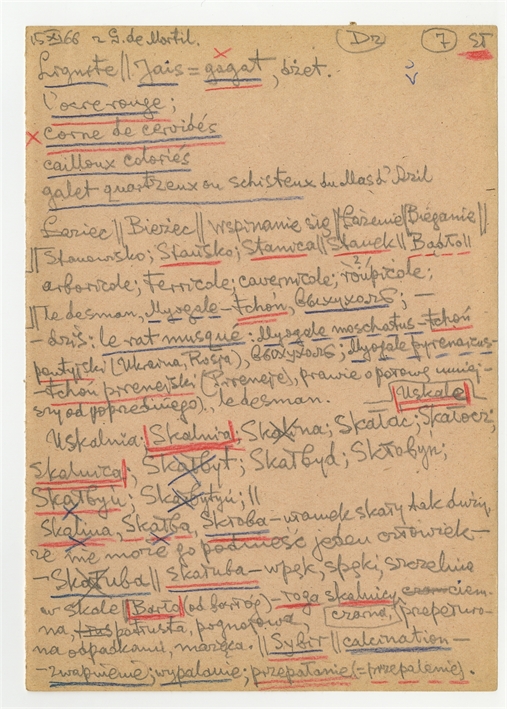 15 XI 66 z G. de Mortil. Dz 7
Lignite || Jais = gagat, dżet.
l'ocre rouge;
corne de cervidés
cailloux coloriés
galet quartzeux ou schisteux du Mas d'Azil
Łaziec || Bieżec || wspinanie się || Łażenie || Bieganie ||
|| Stanowisko; Stańsko; Stanica || Stanek || Barło ||
arboricole; terricole; cavernicole; rupicole;
|| le desman, Myogale - tchoń, Выхухоль; -
- dziś: le rat musqué: Myogale moschatus - tchoń
pontyjski (Ukraina, Rosja), Выхухоль; Myogale pyrenaicus -
- tchoń pirenejski (Pireneje), prawie o połowę mniej-
szy od poprzedniego)., le desman. Uskale
Uskalnia; Skalnia; Skalina; Skalac; Skałocz;
Skalnica; Skałbyt; Skałbyd; Skłobyn;
Skałbyń; ||
Skalina, Skałba, Skłoba - ułamek skały tak duży,
że nie może go podnieść jeden człowiek -
- Skałuba || skałuba - wpęk, spęki, szczelina
w skale || Barło (od barłóg) - rogo skalnicy ciem-
na, pusta, pognojowa, czarna, przepełnio-
na odpadkami, marzka. || Sybir || calcination -
- zwapnienie; wypalanie; przepalanie (= przepalenie).